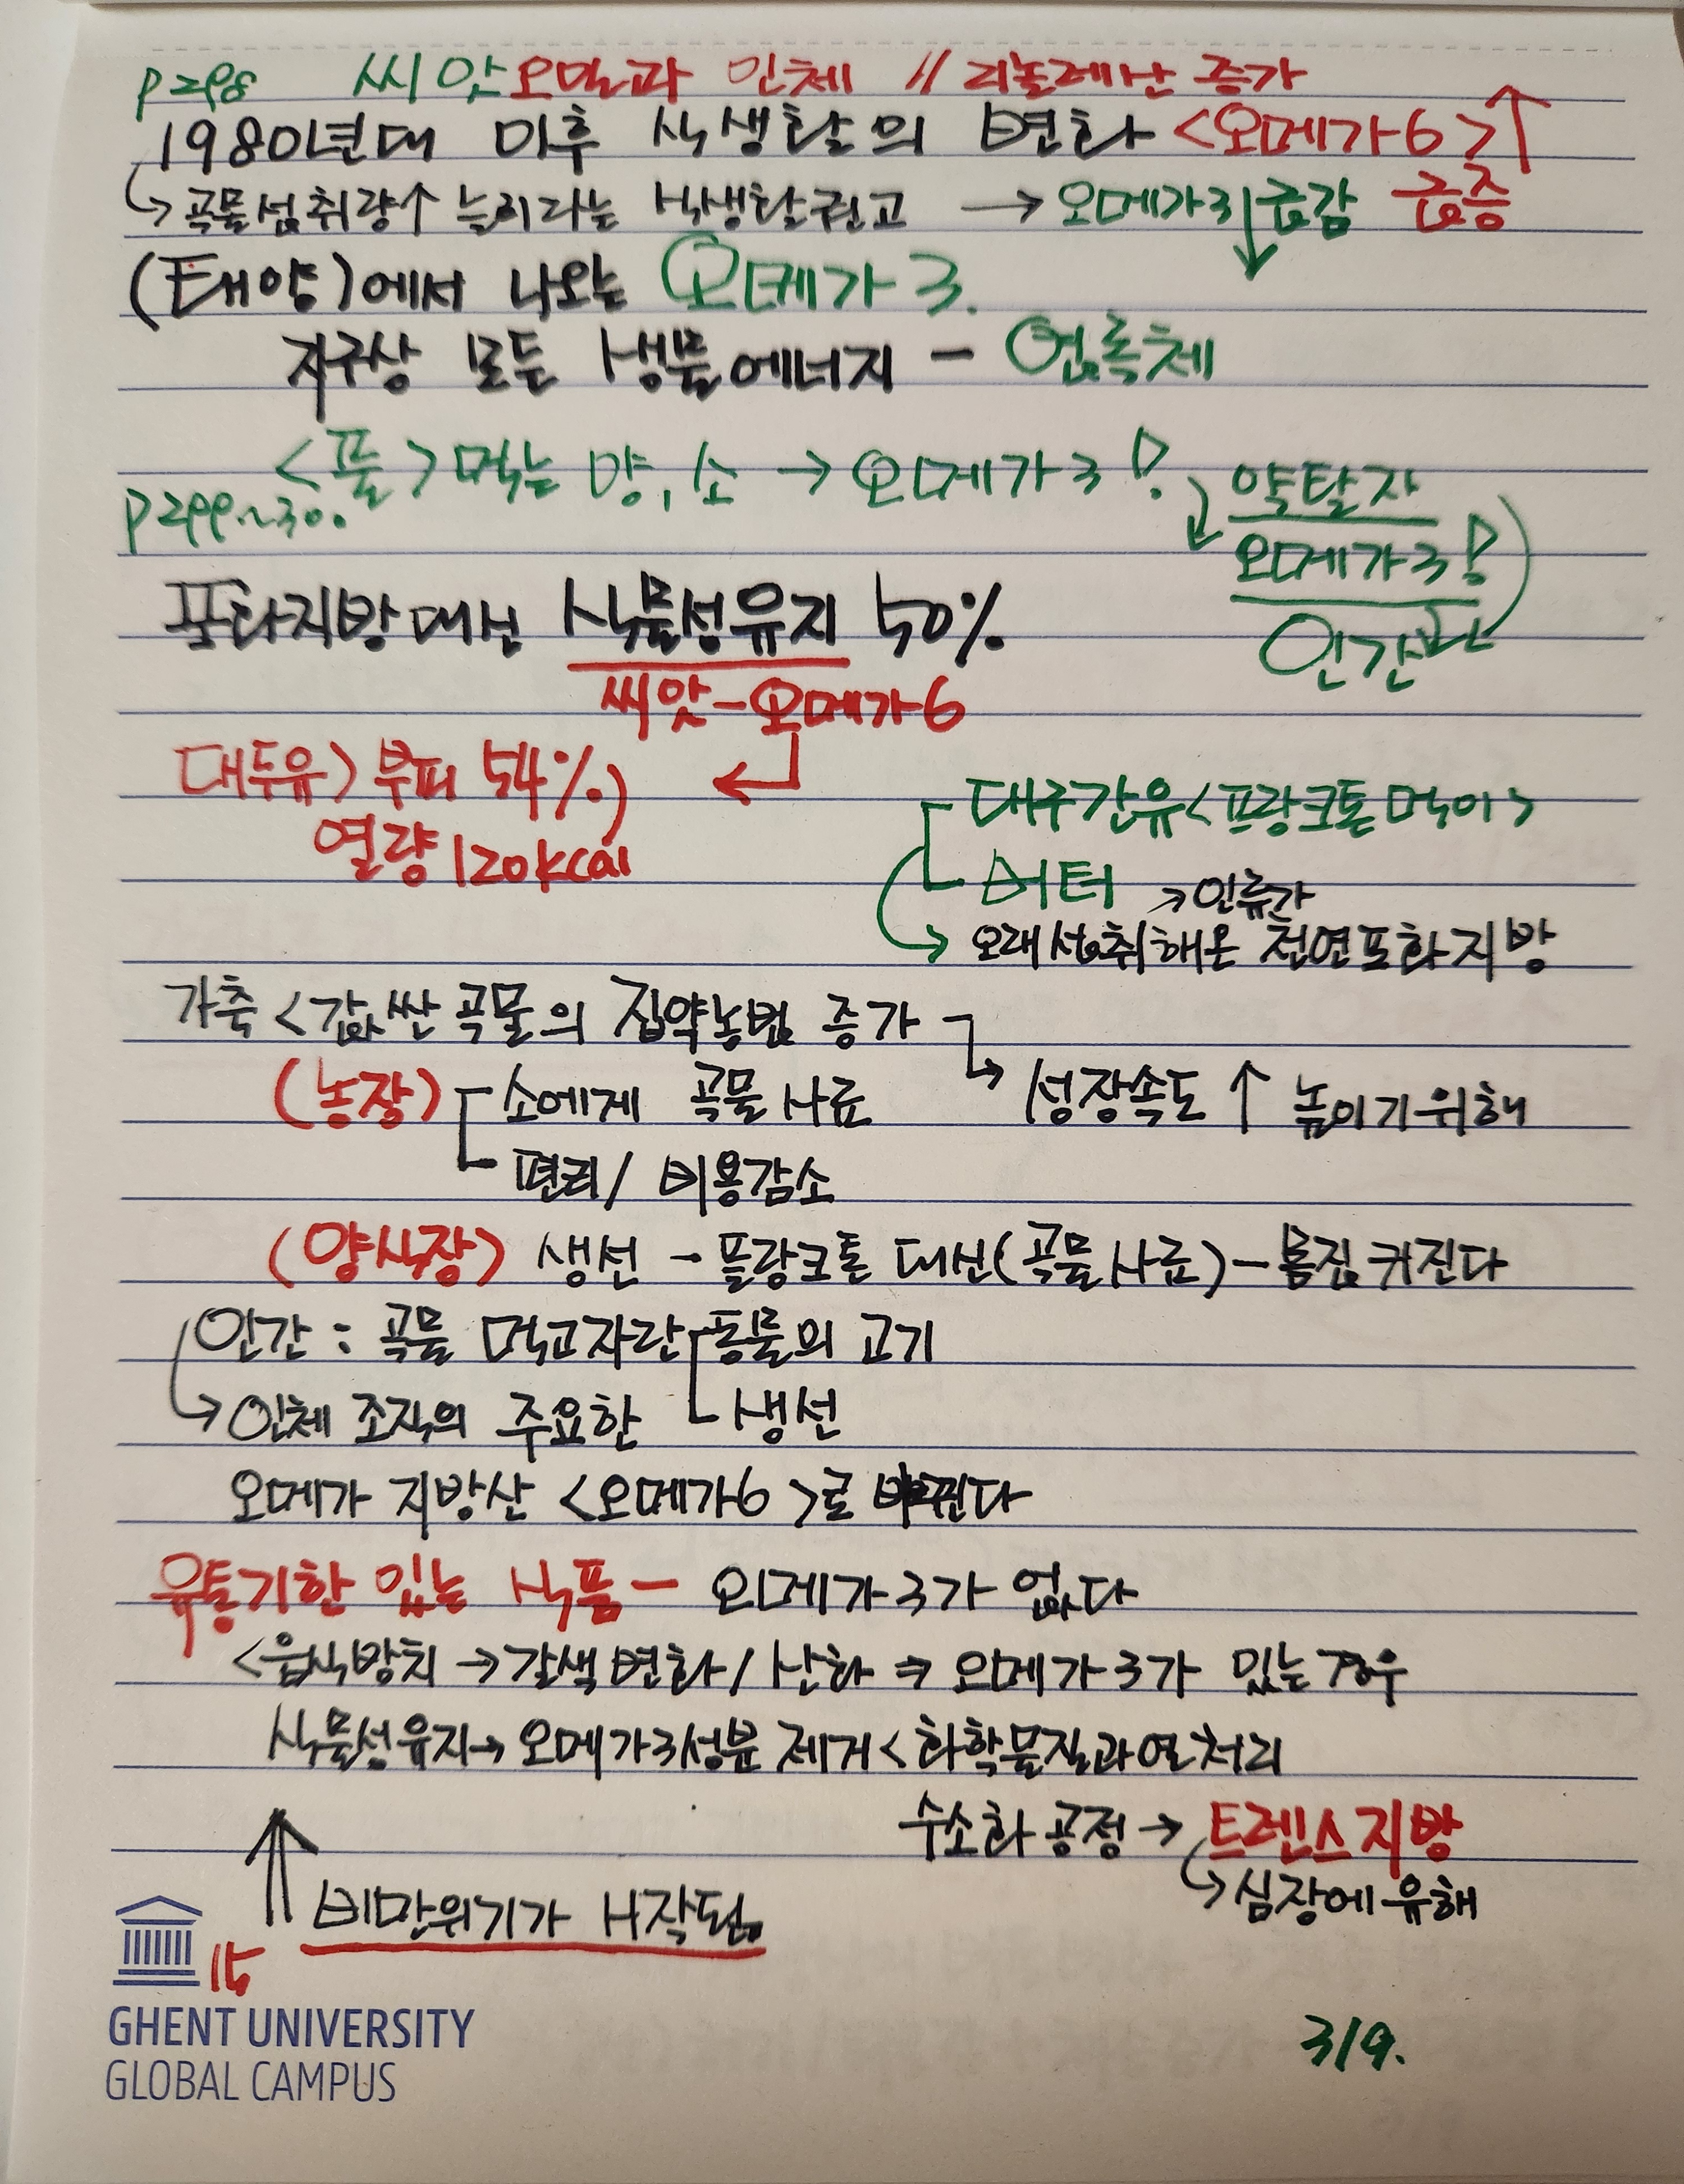 p298 씨앗오일과 인체 // 리놀레산 증가
1980년대 이후 식생활의 변화 <오메가6>↑
↳곡물섭취량↑ 늘리라는 식생활권고 → 오메가3↓급감 급증
(태양)에서 나오는 오메가 3.
지구상 모든 생물에너지 - 엽록체
<풀>먹는 양, 소 → 오메가3!
p299~300
약탈자
오메가3!
인간
포화지방대신 식물성유지 50%
씨앗-오메가6
대두유) 부피 54%)
열량 120kcal
대구간유<프랑크톤 먹이>
버터 →인류가
오래 섭취해온 천연포화지방
가축 <값싼 곡물의 집약농법 증가
(농장) 소에게 곡물사료 성장속도 ↑ 높이기위해
편리/ 비용감소
(양식장) 생선 - 플랑크톤 대신(곡물사료)-몸집커진다
인간 : 곡물 먹고자란 동물의 고기
→인체 조직의 주요한 생선
오메가 지방산 <오메가6>로 바뀐다
유통기한 있는 식품 - 오메가3가 없다
<음식방치 →갈색변화/산화 → 오메가3가 있는경우
식물성유지→오메가3성분 제거<화학물질과열처리
수소화공정 → 트렌스지방
↳심장에유해
↑ 비만위기가 시작됨.
15
GHENT UNIVERSITY
GLOBAL CAMPUS
319.